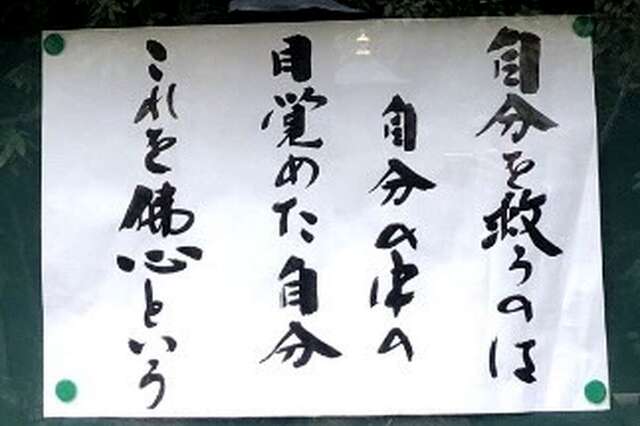 自分を救うのは
自分の中の
目覚めた自分
これを佛心という